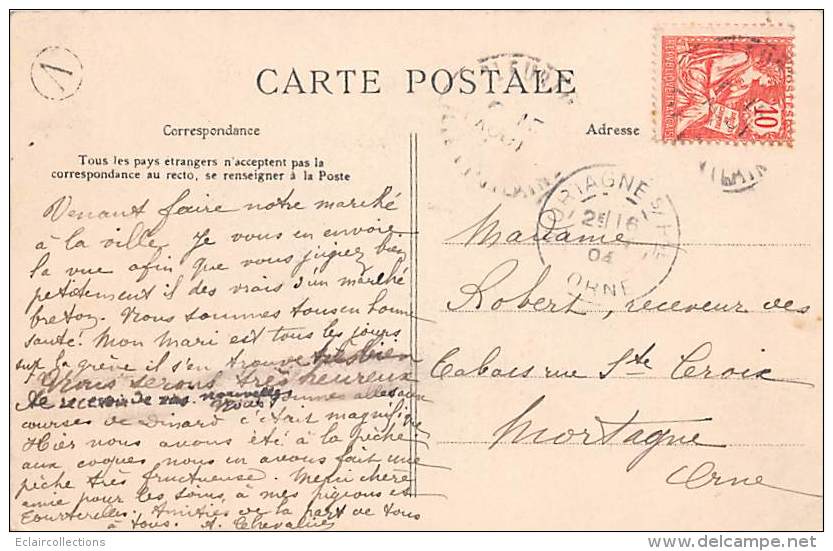 1
CARTE POSTALE
Correspondance
Adresse
Tous les pays étrangers n'acceptent pas la
correspondance au recto, se renseigner à la Poste
10
POSTES
REPUBLIQUE FRANCAISE
MORTAGNE
2E 16
04
ORNE
Venant faire notre marché
à la ville je vous en envoie
la vue afin que vous jugiez bien
petitement il des vrais d'un marché
breton. Nous sommes tous en bonne
santé. Mon Mari est tous les jours
sur la grève il s'en trouve très bien
Nous serons très heureux
de recevoir de vos nouvelles
Nous sommes allés aux
courses de Dinard c'était magnifique
Hier nous avons été à la pêche
aux coques nous en avons fait une
pêche très fructueuse. Merci chère
amie pour les soins à mes pigeons et
tourterelles. Amitiés de la part de tous
à tous. A. Chevalier
Madame
Robert, receveur des
Tabacs rue Ste Croix
Mortagne
Orne
Eclaircollections
delcampe.net